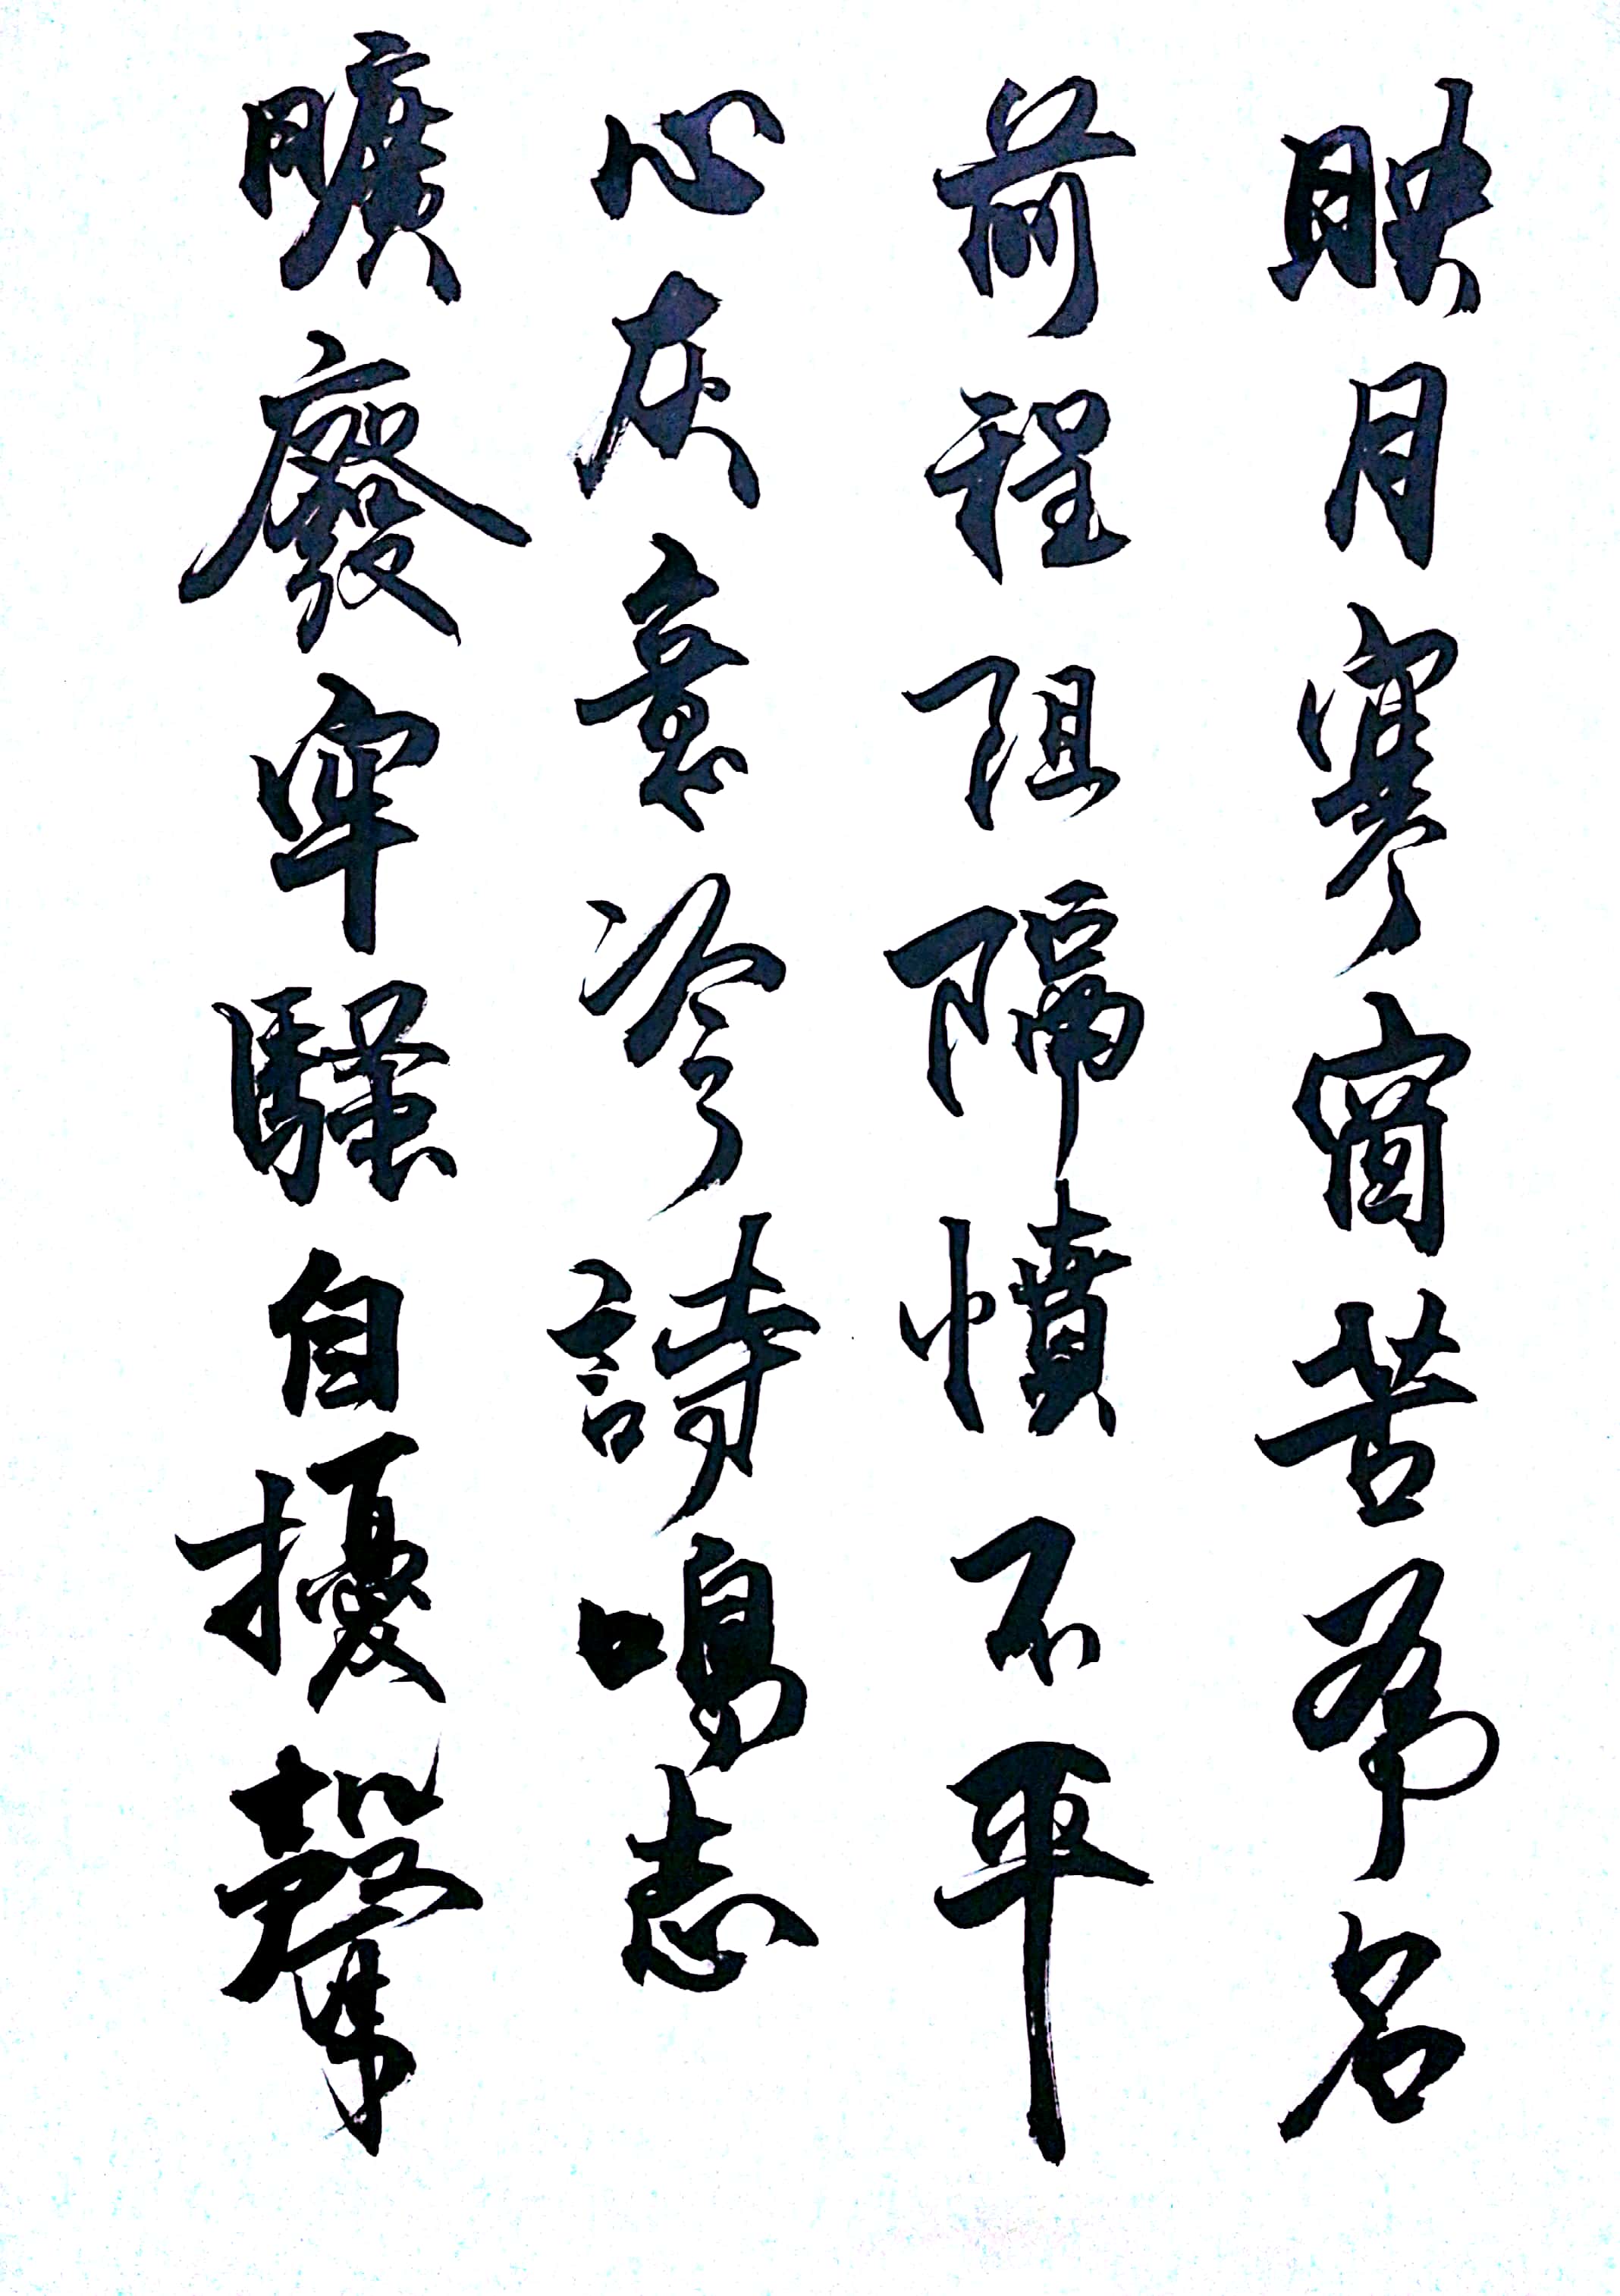 映月寒窗苦爭名
前程阻隔憤不平
心灰意冷詩鳴志
曠廢牢騷自擾聲